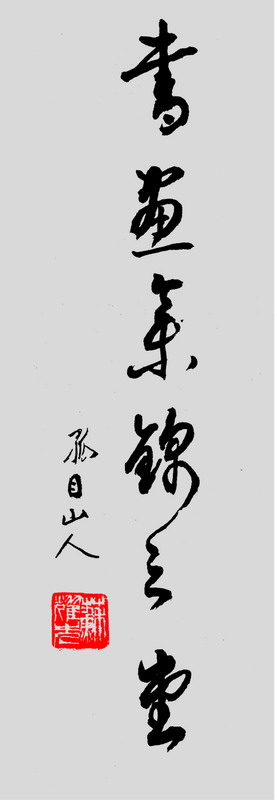 書畫集錦之堂
孤目山人